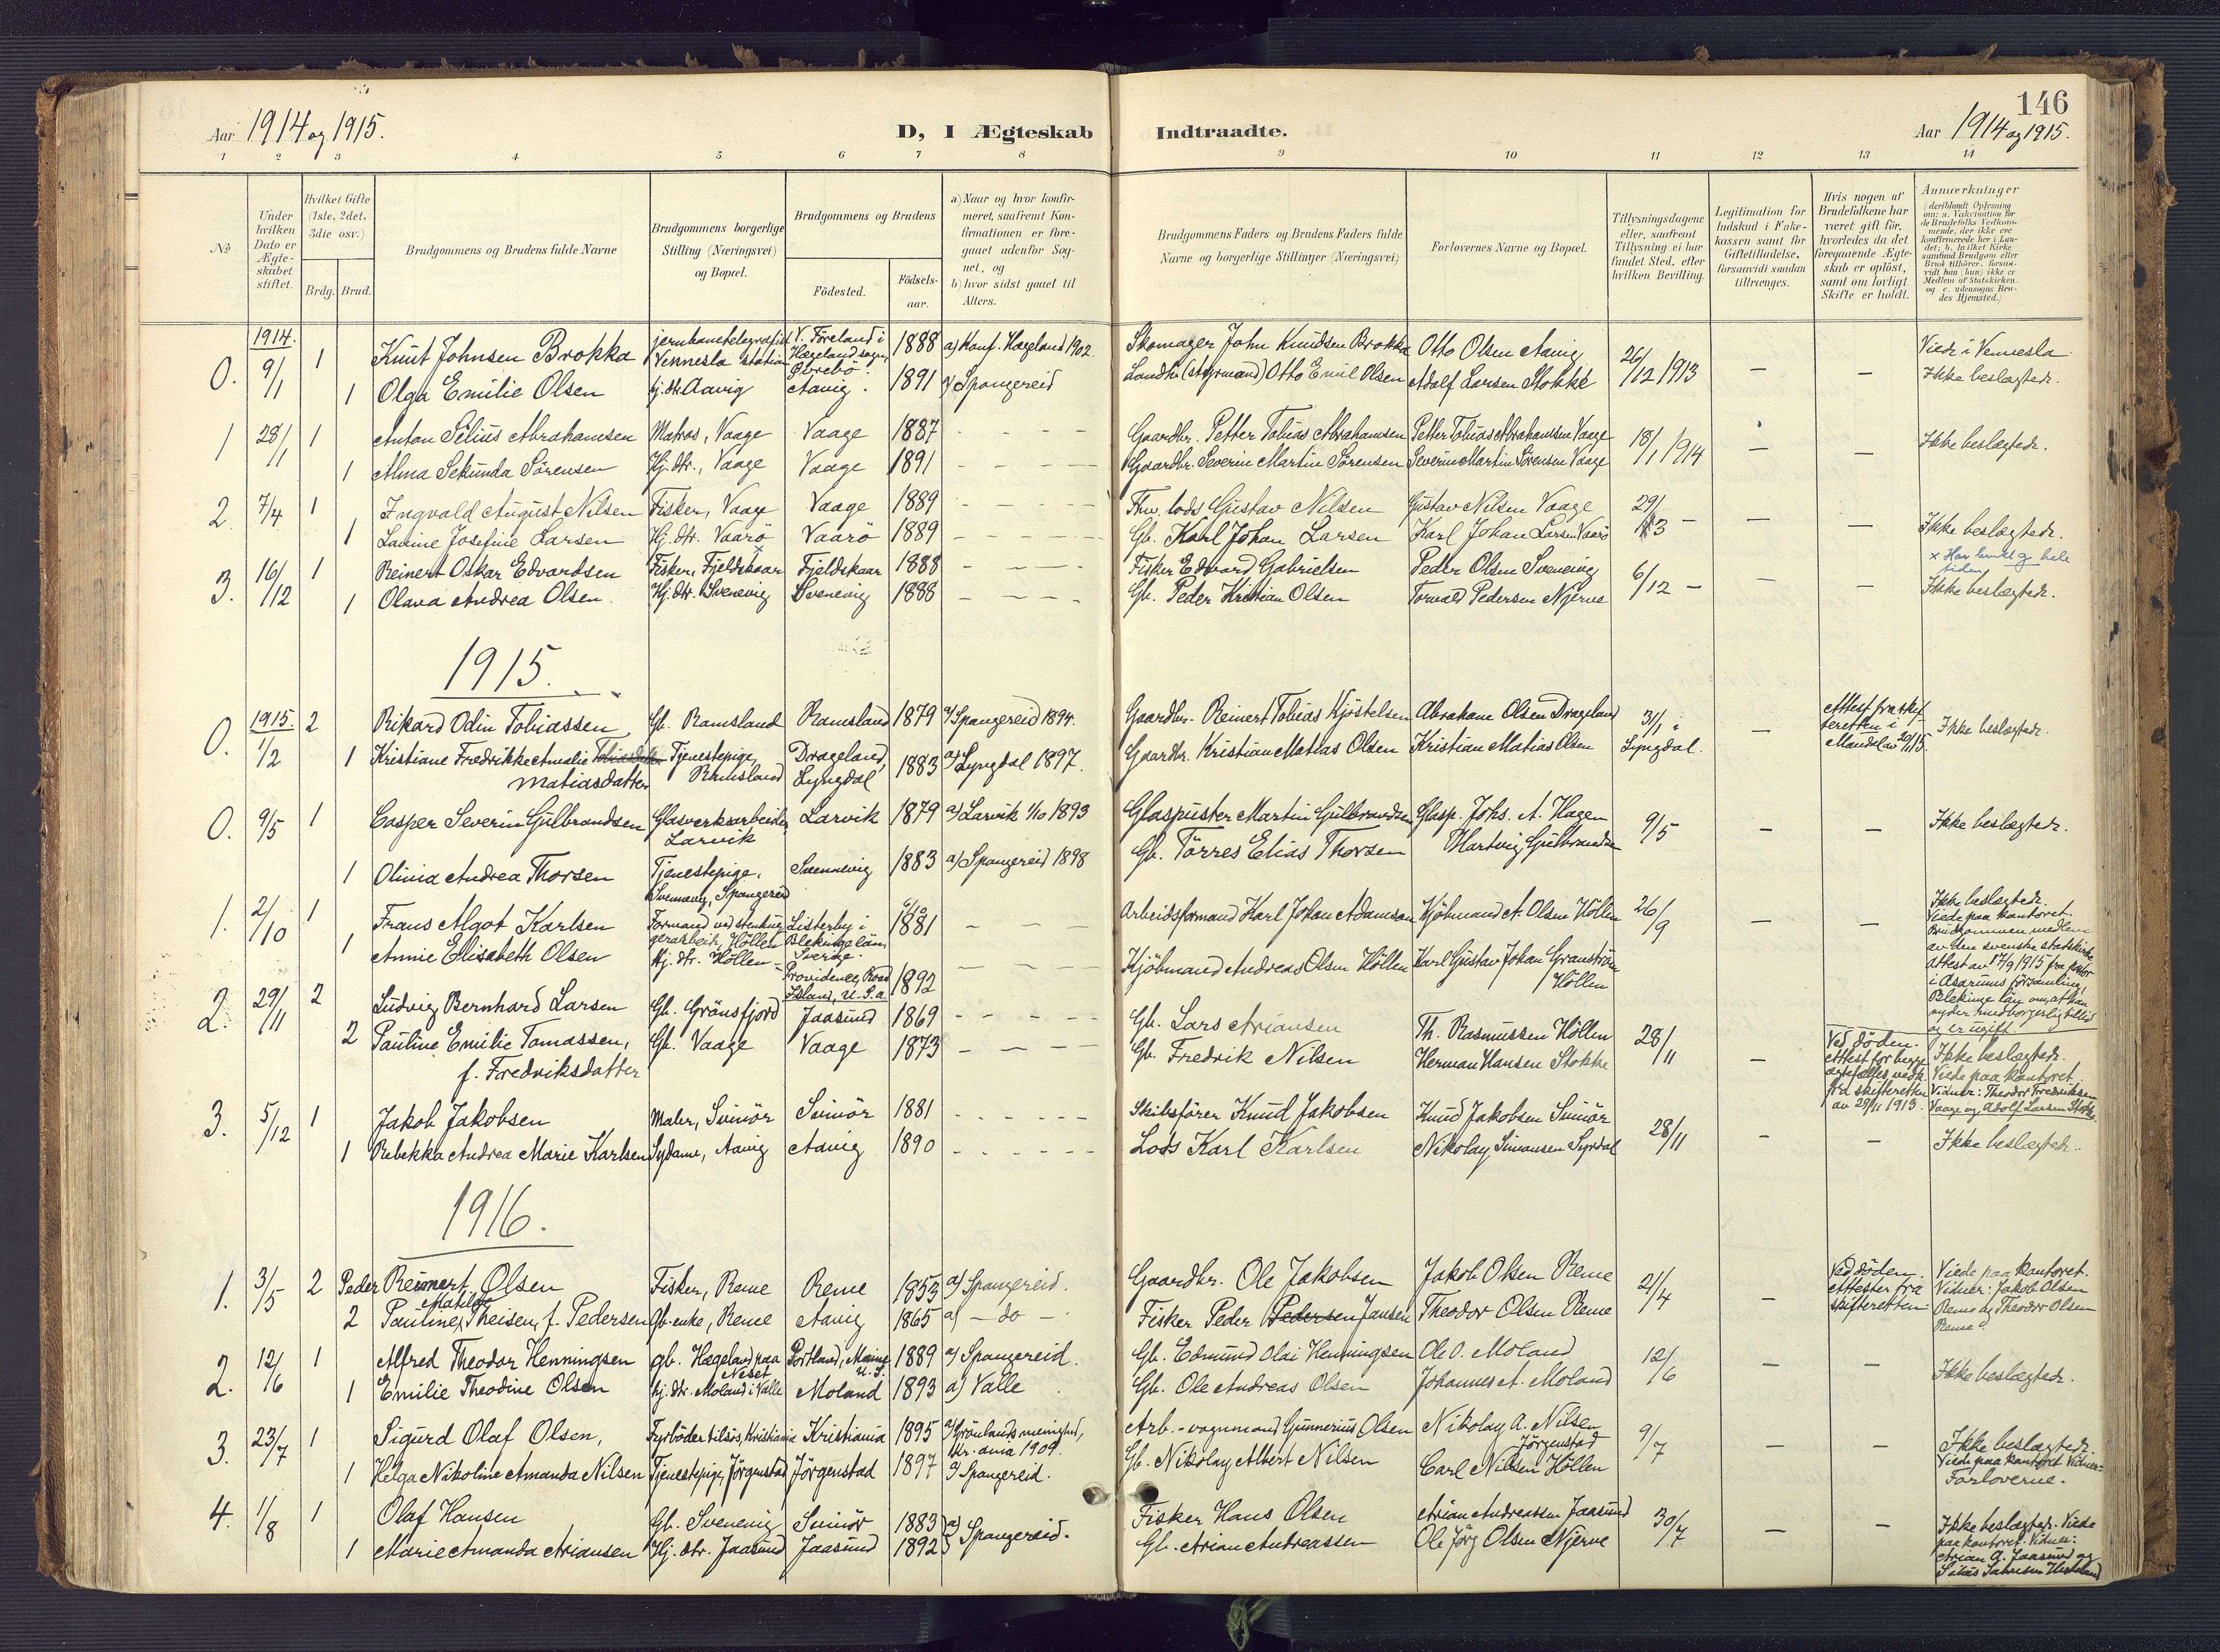 146
Aar 1914 og 1915.
D, I Ægteskab Indtraadte.
Aar 1914 og 1915.
1 2 3 4 5 6 7 8 9 10 11 12 13 14
No
Under hvilken Dato er Ægteskabet stiftet.
Hvilket Gifte (1ste, 2det, 3die osv.)
Brdg. Brud.
Brudgommens og Brudens fulde Navne
Brudgommens borgerlige Stilling (Næringsvei) og Bopæl.
Brudgommens og Brudens
Födested.
Födselsaar.
a) Naar og hvor konfirmeret, saafremt Konfirmationen er foregaaet udenfor Sognet, og
b) hvor sidst gaaet til Alters.
Brudgommens Faders og Brudens Faders fulde Navne og borgerlige Stillinger (Næringsvei)
Forlovernes Navne og Bopæl.
Tillysningsdagene eller, saafremt Tillysning ei har fundet Sted, efter hvilken Bevilling.
Legitimation for Indskud i Enkekassen samt for Giftetilladelse, forsaavidt saadan tiltrænges.
Hvis nogen af Brudefolkene har været gift för, hvorledes da det foregaaende Ægteskab er oplöst, samt om lovligt Skifte er holdt.
Anmærkninger
(deriblandt Oplysning om: a. Vakcination for de Brudefolks Vedkommende, der ikke ere konfirmerede her i Landet; b. hvilket Kirkesamfund Brudgom eller Brud tilhörer, forsaavidt han (hun) ikke er Medlem af Statskirken, og c. udensogns Brudes Hjemsted.)
1914.
0. 9/1 1 Knut Johnsen Brokka jernbanetelegrafist Vennesla station V. Föreland i Hægeland sogn, Övrebö. 1888 a) Konf. Hægeland 1902. Skomager John Knudsen Brokka Otto Olsen Aavig 26/12 1913 — — Viede i Vennesla
1 Olga Emilie Olsen hj. dtr. Aavig Aavig. 1891 a) Spangereid Landh. (styrmand) Otto Emil Olsen Adolf Larsen Stokke Ikke beslægtede.
1 28/1 1 Anton Selius Abrahamsen Matros, Vaage Vaage 1887 - - - - Gaardbr. Petter Tobias Abrahamsen Petter Tobias Abrahamsen Vaage 18/1 1914 — — Ikke beslægtede.
1 Alma Sekunda Sörensen Hj. dtr., Vaage Vaage 1891 - - - - Gaardbr. Severin Martin Sörensen Severin Martin Sörensen Vaage
2 7/4 1 Ingvald August Nilsen Fisker, Vaage Vaage 1889 - - - - lods Gustav Nilsen Gustav Nilsen Vaage 29/3 — — — Ikke beslægtede.
1 Lavine Josefine Larsen Hj. dtr. Vaarö Vaarö 1889 - - - - Gb. Karl Johan Larsen Karl Johan Larsen Vaarö
3. 16/12 1 Reinert Oskar Edvardsen Fisker, Fjeldskaar x Fjeldskaar 1888 - - - - Fisker Edvard Gabrielsen Peder Olsen Svenevig 6/12 — — — x Har hele tiden
1 Olava Andrea Olsen. Hj. dtr. Svenevig Svenevig 1888 - - - - Gb. Peder Kristian Olsen Torvald Pedersen Njerve Ikke beslægtede.
1915.
1915.
0. 1/2 2 Rikard Odin Tobiassen Gb. Ramsland Ramsland 1879 a) Spangereid 1894. Gaardbr. Reinert Tobias Kjöstelsen Abraham Olsen Drageland 31/1 i Lyngdal. — Attest fra skifteretten i Mandal av 29/1 15. Ikke beslægtede.
1 Kristiane Fredrikke Amalie Tobiasdatter Matiasdatter Tjenestepige, Ramsland Drageland, Lyngdal 1883 a) Lyngdal 1897. Gaardbr. Kristian Matias Olsen Kristian Matias Olsen
0. 9/5 1 Casper Severin Gulbrandsen Glasverksarbeider Larvik Larvik 1879 a) Larvik 1/10 1893 Glaspuster Martin Gulbrandsen Glasp. Johs. A. Hagen 9/5 — — Ikke beslægtede.
1 Olivia Andrea Thorsen Tjenestepige, Svennevig, Spangereid Svennevig 1883 a) Spangereid 1898 Gb. Törres Elias Thorsen Hartvig Gulbrandsen
1. 2/10 1 Frans Algot Karlsen Formand ved stenhuggerarbeid, Höllen Listerby i Blekinge län, Sverige. 1881 - - - Arbeidsformand Karl Johan Adamson Kjöbmand A. Olsen Höllen 26/9 — — Ikke beslægtede. Viede paa kontoret. Brudgommen medlem av den svenske statskirke, attest av 17/9 1915 fra pastor i Asarums församling, Blekinge län om, at han nyder medborgerlig tillid og er ugift.
1 Annie Elisabeth Olsen Hj. dtr. Höllen Providence, Road Island, U.S.a. 1892 - - - Kjöbmand Andreas Olsen Höllen Karl Gustav Johan Granström Höllen
2. 29/11 2 Ludvig Bernhard Larsen Gb. Grönsfjord Jaasund 1869 - - - - Gb. Lars Ariansen Th. Rasmussen Höllen 28/11 — Ved döden. Attest for begge ægtefælles vedk. fra skifteretten av 29/11 1913. Ikke beslægtede. Viede paa kontoret. Vidner: Theodor Fredriksen Vaage og Adolf Larsen Stokke.
2 Pauline Emilie Tomassen, f. Fredriksdatter Gb. Vaage Vaage 1873 - - - - Gb. Fredrik Nilsen Herman Hansen Stokke
3. 5/12 1 Jakob Jakobsen Maler, Svinör Svinör 1881 - - - - Skibsförer Knud Jakobsen Knud Jakobsen Svinör 28/11 — — Ikke beslægtede.
1 Rebekka Andrea Marie Karlsen Sydame, Aavig Aavig 1890 - - - - Lods Karl Karlsen Nikolay Simonsen Syrdal
1916.
1. 3/5 2 Peder Reinert Olsen Fisker, Reme Reme 1853 a) Spangereid. Gaardbr. Ole Jakobsen Jakob Olsen Reme 21/4 — Ved döden. Attester fra skifteretten. Viede paa kontoret. Vidner: Jakob Olsen Reme og Theodor Olsen Reme.
2 Pauline Matilde Theisen, f. Pedersen Gb. enke, Reme Aavig 1865 a) — do — Fisker Peder Pedersen Jansen Theodor Olsen Reme
2. 12/6 1 Alfred Theodor Henningsen gb. Hægeland paa Neset Portland, Maine U.S. 1889 a) Spangereid. Gb. Edmund Olai Henningsen Ole O. Moland 12/6 — — Ikke beslægtede.
1 Emilie Theodine Olsen hj. dtr. Moland i Valle Moland 1893 a) Valle Gb. Ole Andreas Olsen Johannes A. Moland
3. 23/7 1 Sigurd Olaf Olsen, Fyrböder tilsös, Kristiania Kristiania 1895 a) Grönlands menighed, Kr.ania 1909. Arb.-vognmand Gunnerius Olsen Nikolay A. Nilsen Jörgenstad 9/7 — — Ikke beslægtede. Viede paa kontoret Vidner: Forloverne.
1 Helga Nikoline Amanda Nilsen Tjenestepige, Jörgenstad Jörgenstad 1897 a) Spangereid. Gb. Nikolay Albert Nilsen Carl Nilsen Höllen
4. 1/8 1 Olaf Hansen Gb. Svenevig Svinör 1883 a) Spangereid. Fisker Hans Olsen Arian Andreassen Jaasund 30/7 — — Ikke beslægtede. Viede paa kontoret. Vidner: Arian A. Jaasund og
1 Marie Amanda Ariansen Hj. dtr. Jaasund Jaasund 1892 Gb. Arian Andreassen Ole Jörg Olsen Njerve